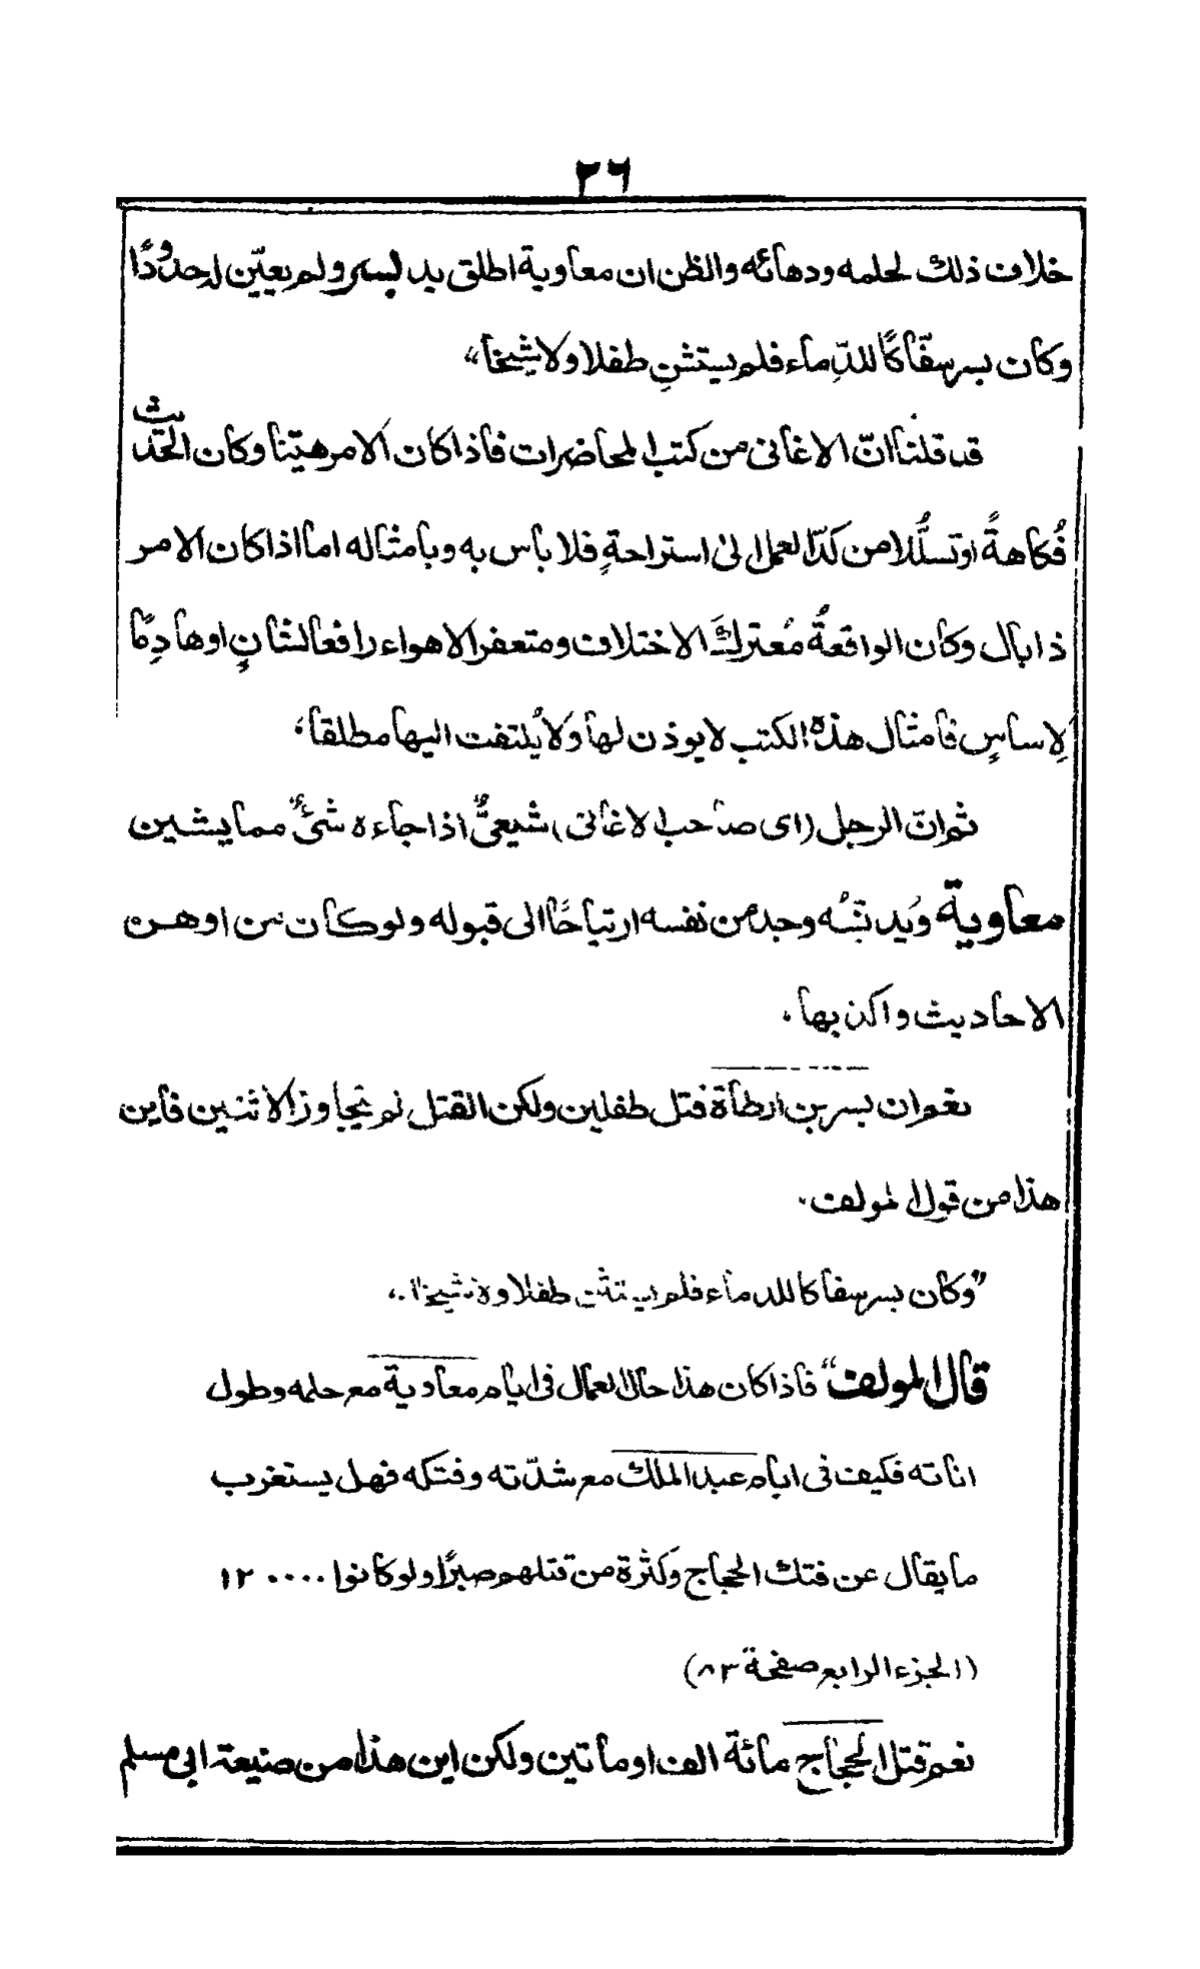 ٢٦
خلاف ذلك لحلمه ودهائه والظن ان معاوية اطلق يد بسر ولم يعيّن له حدودًا
وكان بسر سفّاكًا للدِّماء فلم يستثنِ طفلا ولا شيخا"
قد قلنا انّ الاغانى من كتب المحاضرات فاذا كان الامر هيّنا وكان الحديث
فُكاهةً او تسلُّلا من كدّ العمل الىٰ استراحةٍ فلا باس به وبامثاله اما اذا كان الامر
ذا بال وكان الواقعةُ مُعتركَ الاختلاف ومتعفر الاهواء رافعا لشانٍ او هادِمًا
لِاساسٍ فامثال هذه الكتب لا يوذن لها ولا يُلتفت اليها مطلقا،
ثم انّ الرجل (اى صاحب الاغانى) شيعىٌّ اذا جاءه شىءٌ مما يشين
معاوية وَيدنّسُه وجد من نفسه ارتياحًا الى قبوله ولو كان من اوهن
الاحاديث واكذبها.
نعم ان بسر بن ارطاة قتل طفلين ولكن القتل لم يتجاوز الاثنين فاين
هذا من قول المولف.
"وكان بسر سفاكا للدماء فلم يستثن طفلا ولا شيخا.،
قال المولف" فاذا كان هذا حال العمال فى ايام معاوية مع حلمه وطول
اناته فكيف فى ايام عبد الملك مع شدّته وفتكه فهل يستغرب
ما يقال عن فتك الحجاج وكثرة من قتلهم صبرًا ولو كانوا ١٢٠٠٠٠
(الجزء الرابع صفحة ٨٣)
نعم قتل الحجاج مائة الف او مأتين ولكن اين هذا من صنيعة ابى مسلم